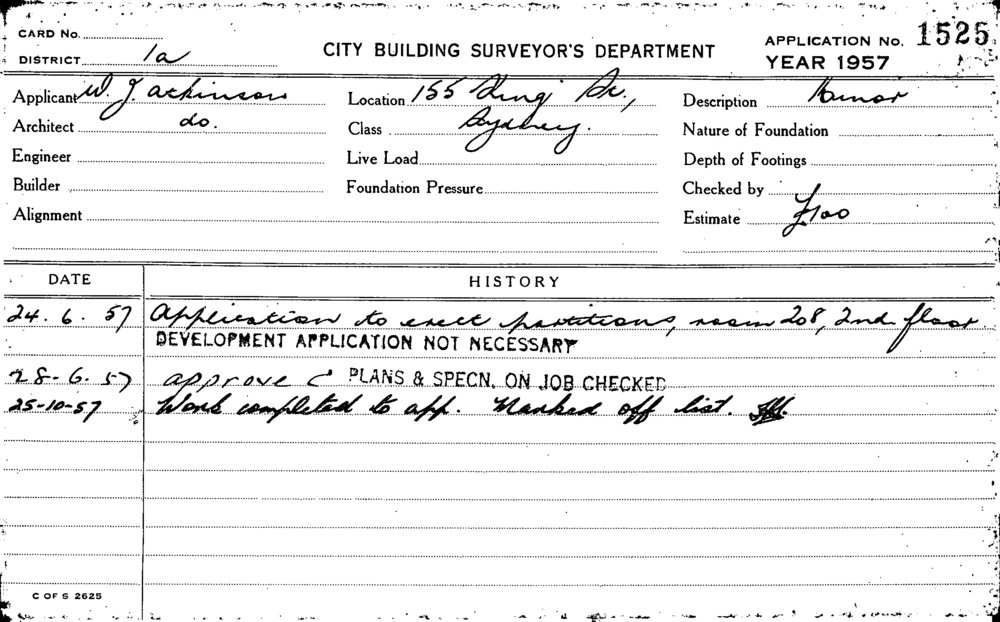 CARD No.
DISTRICT 1a
CITY BUILDING SURVEYOR'S DEPARTMENT
APPLICATION No. 1525
YEAR 1957
Applicant W. J. Ackinson Location 155 King St., Description Minor
Architect do. Class Sydney. Nature of Foundation
Engineer Live Load Depth of Footings
Builder Foundation Pressure Checked by
Alignment Estimate £100
DATE HISTORY
24. 6. 57 Application to erect partitions, room 208, 2nd floor
DEVELOPMENT APPLICATION NOT NECESSARY
28-6.57 approve C PLANS & SPECN. ON JOB CHECKED
25-10-57 Work completed to app. Marked off list.
C OF S 2625